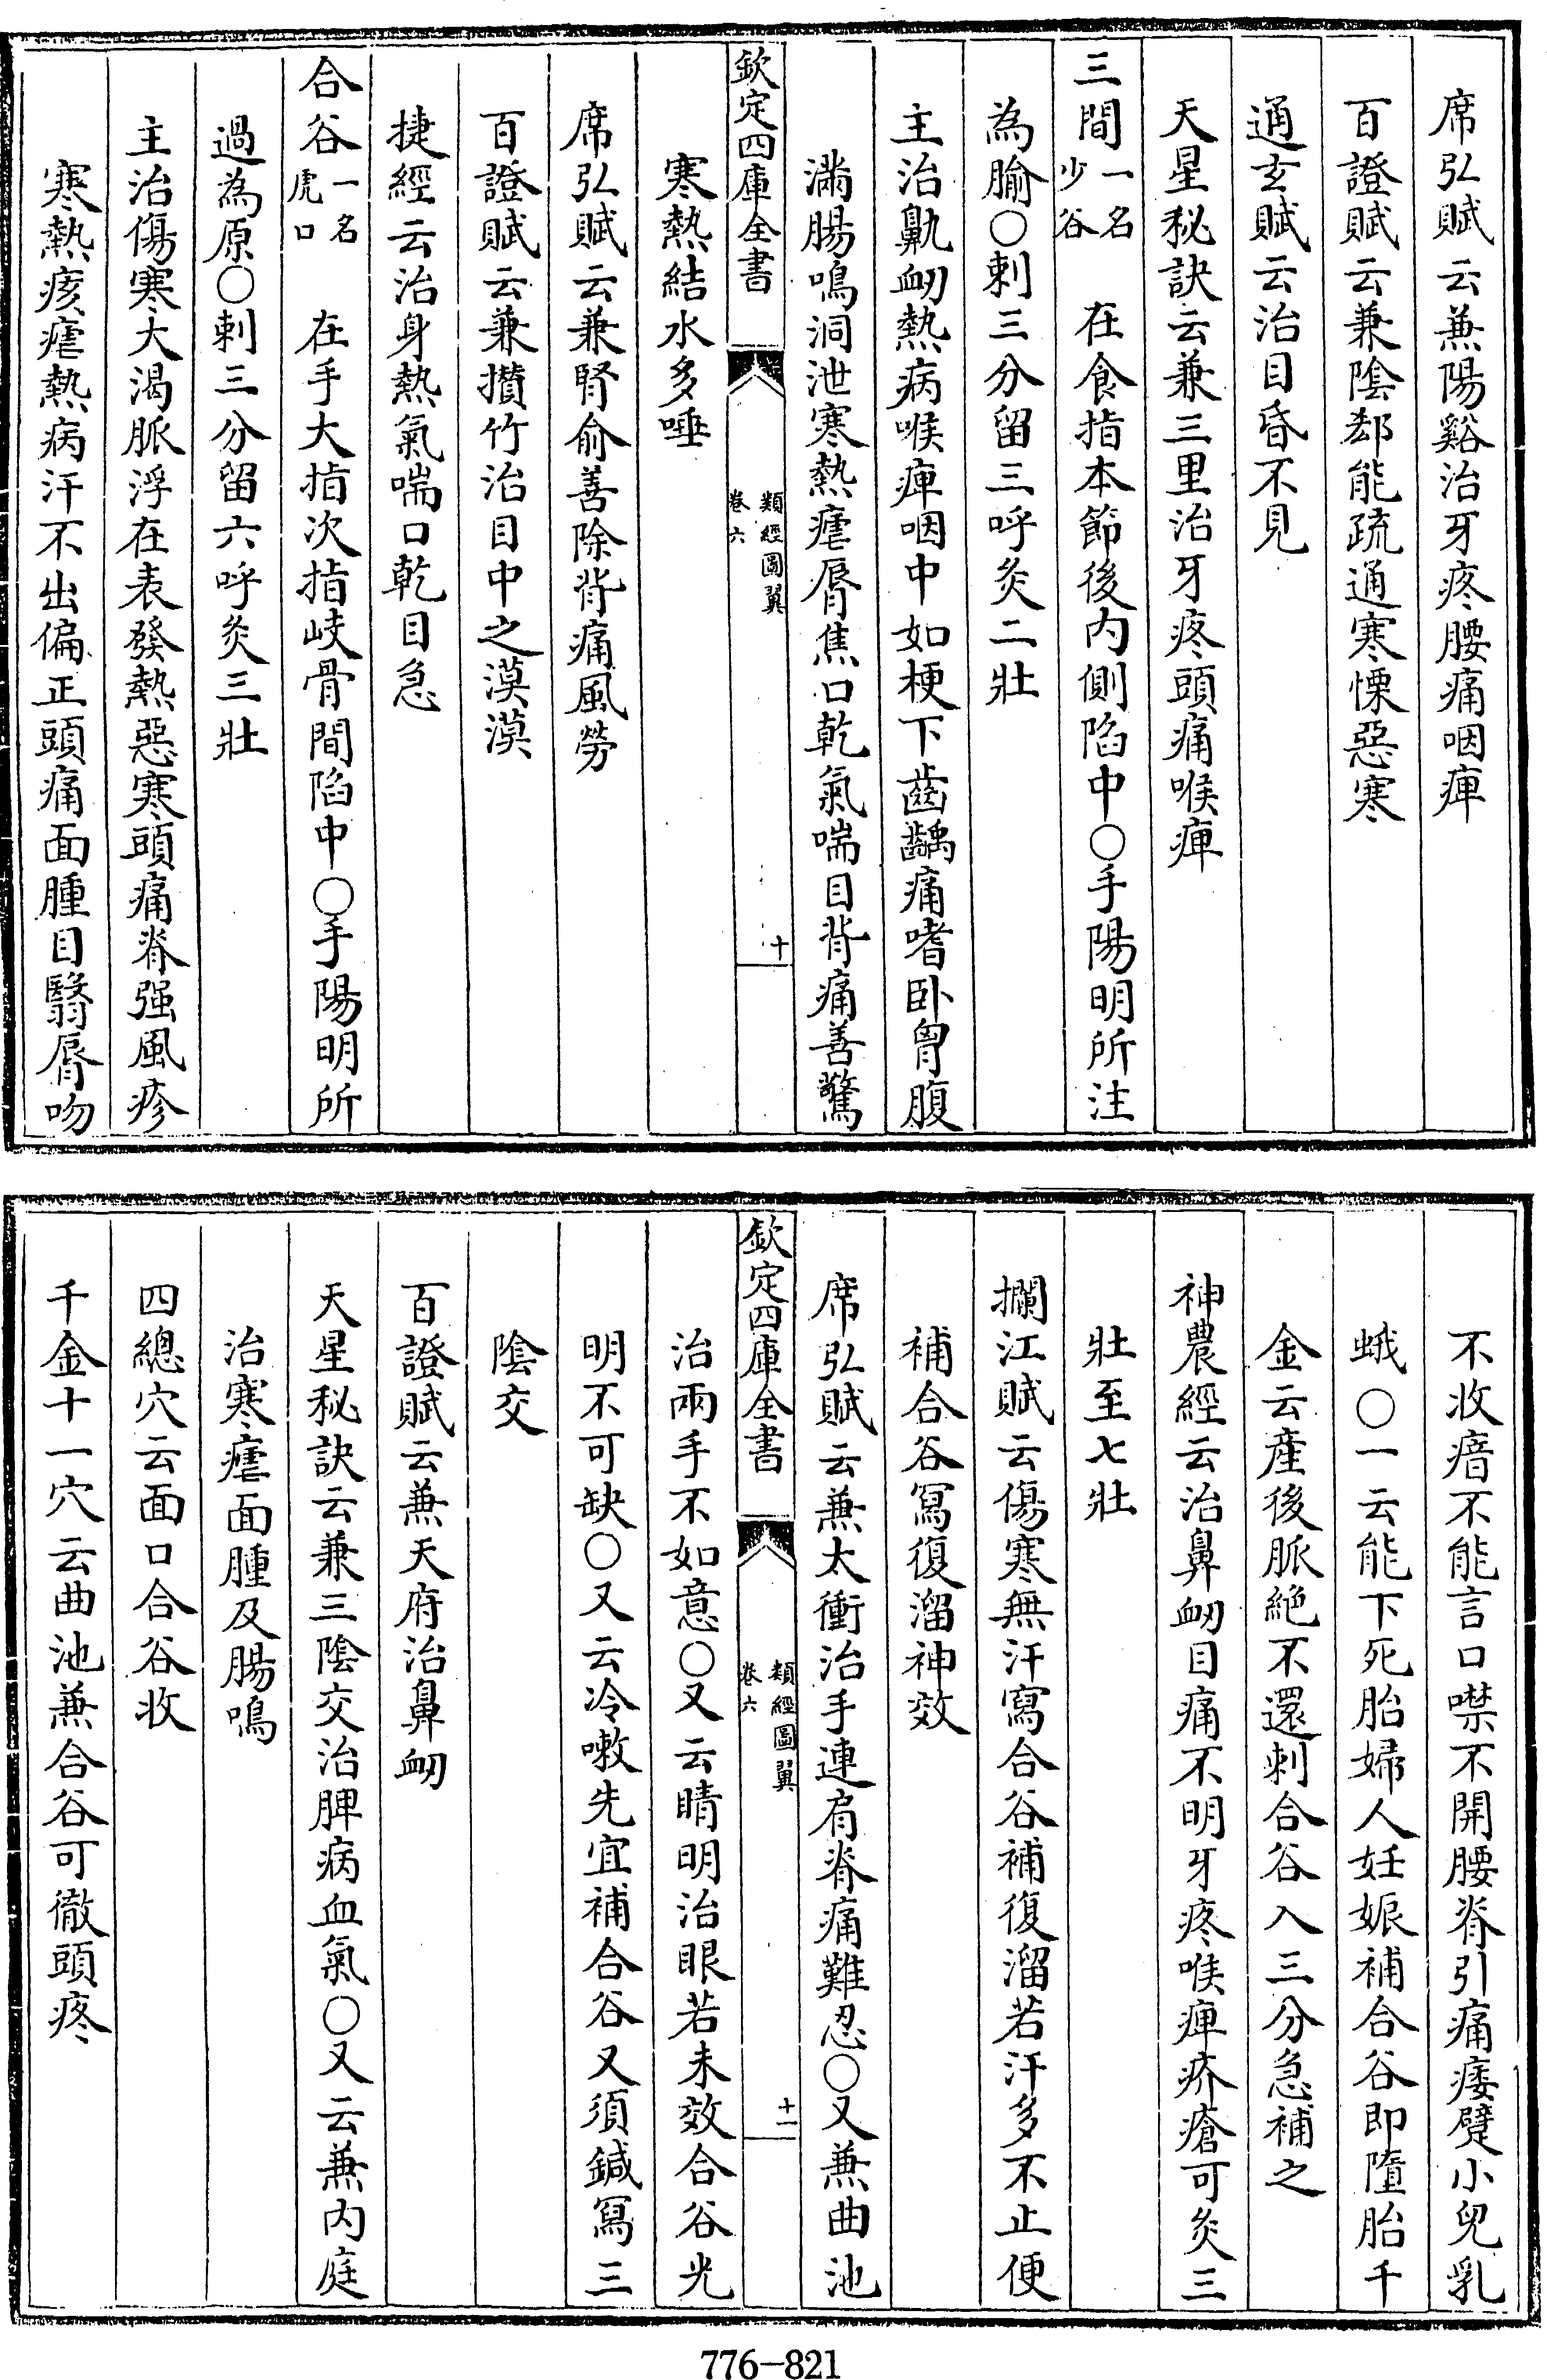 席弘賦云兼陽谿治牙疼腰痛咽痺
百證賦云兼陰郄能疏通寒慄惡寒
通玄賦云治目昏不見
天星秘訣云兼三里治牙疼頭痛喉痺
三間一名少谷 在食指本節後内側陷中○手陽明所注
為腧○刺三分留三呼灸二壯
主治鼽衂熱病喉痺咽中如梗下齒齲痛嗜卧胷腹
滿腸鳴洞泄寒熱瘧脣焦口乾氣喘目眥痛善驚
欽定四庫全書
類經圖翼
卷六
十
寒熱結水多唾
席弘賦云兼腎俞善除背痛風勞
百證賦云兼攢竹治目中之漠漠
捷經云治身熱氣喘口乾目急
合谷一名虎口 在手大指次指歧骨間陷中○手陽明所
過為原○刺三分留六呼灸三壯
主治傷寒大渴脈浮在表發熱惡寒頭痛脊强風疹
寒熱痎瘧熱病汗不出偏正頭痛面腫目翳脣吻
不收瘖不能言口噤不開腰脊引痛痿躄小兒乳
蛾○一云能下死胎婦人妊娠補合谷即墮胎千
金云產後脈絶不還刺合谷入三分急補之
神農經云治鼻衂目痛不明牙疼喉痺疥瘡可灸三
壯至七壯
攔江賦云傷寒無汗寫合谷補復溜若汗多不止便
補合谷寫復溜神效
席弘賦云兼太衝治手連肩脊痛難忍○又兼曲池
欽定四庫全書
類經圖翼
卷六
十一
治兩手不如意○又云睛明治眼若未效合谷光
明不可缺○又云冷嗽先宜補合谷又須鍼寫三
陰交
百證賦云兼天府治鼻衂
天星秘訣云兼三陰交治脾病血氣○又云兼内庭
治寒瘧面腫及腸鳴
四總穴云面口合谷收
千金十一穴云曲池兼合谷可徹頭疼
776-821